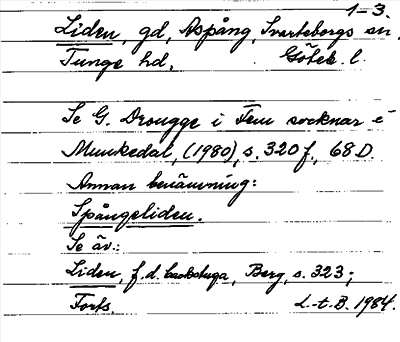 1-3.
Liden, gd, Aspång, Svarteborgs sn.
Tunge hd, Göteb. l.
Se G. Drougge i Fem socknar i
Munkedal, (1980), s. 320 f., 68 D.
Annan benämning:
Spångeliden.
Se äv.:
Liden, f.d. backstuga, Berg, s. 323;
Forts. L.-t. B. 1984.